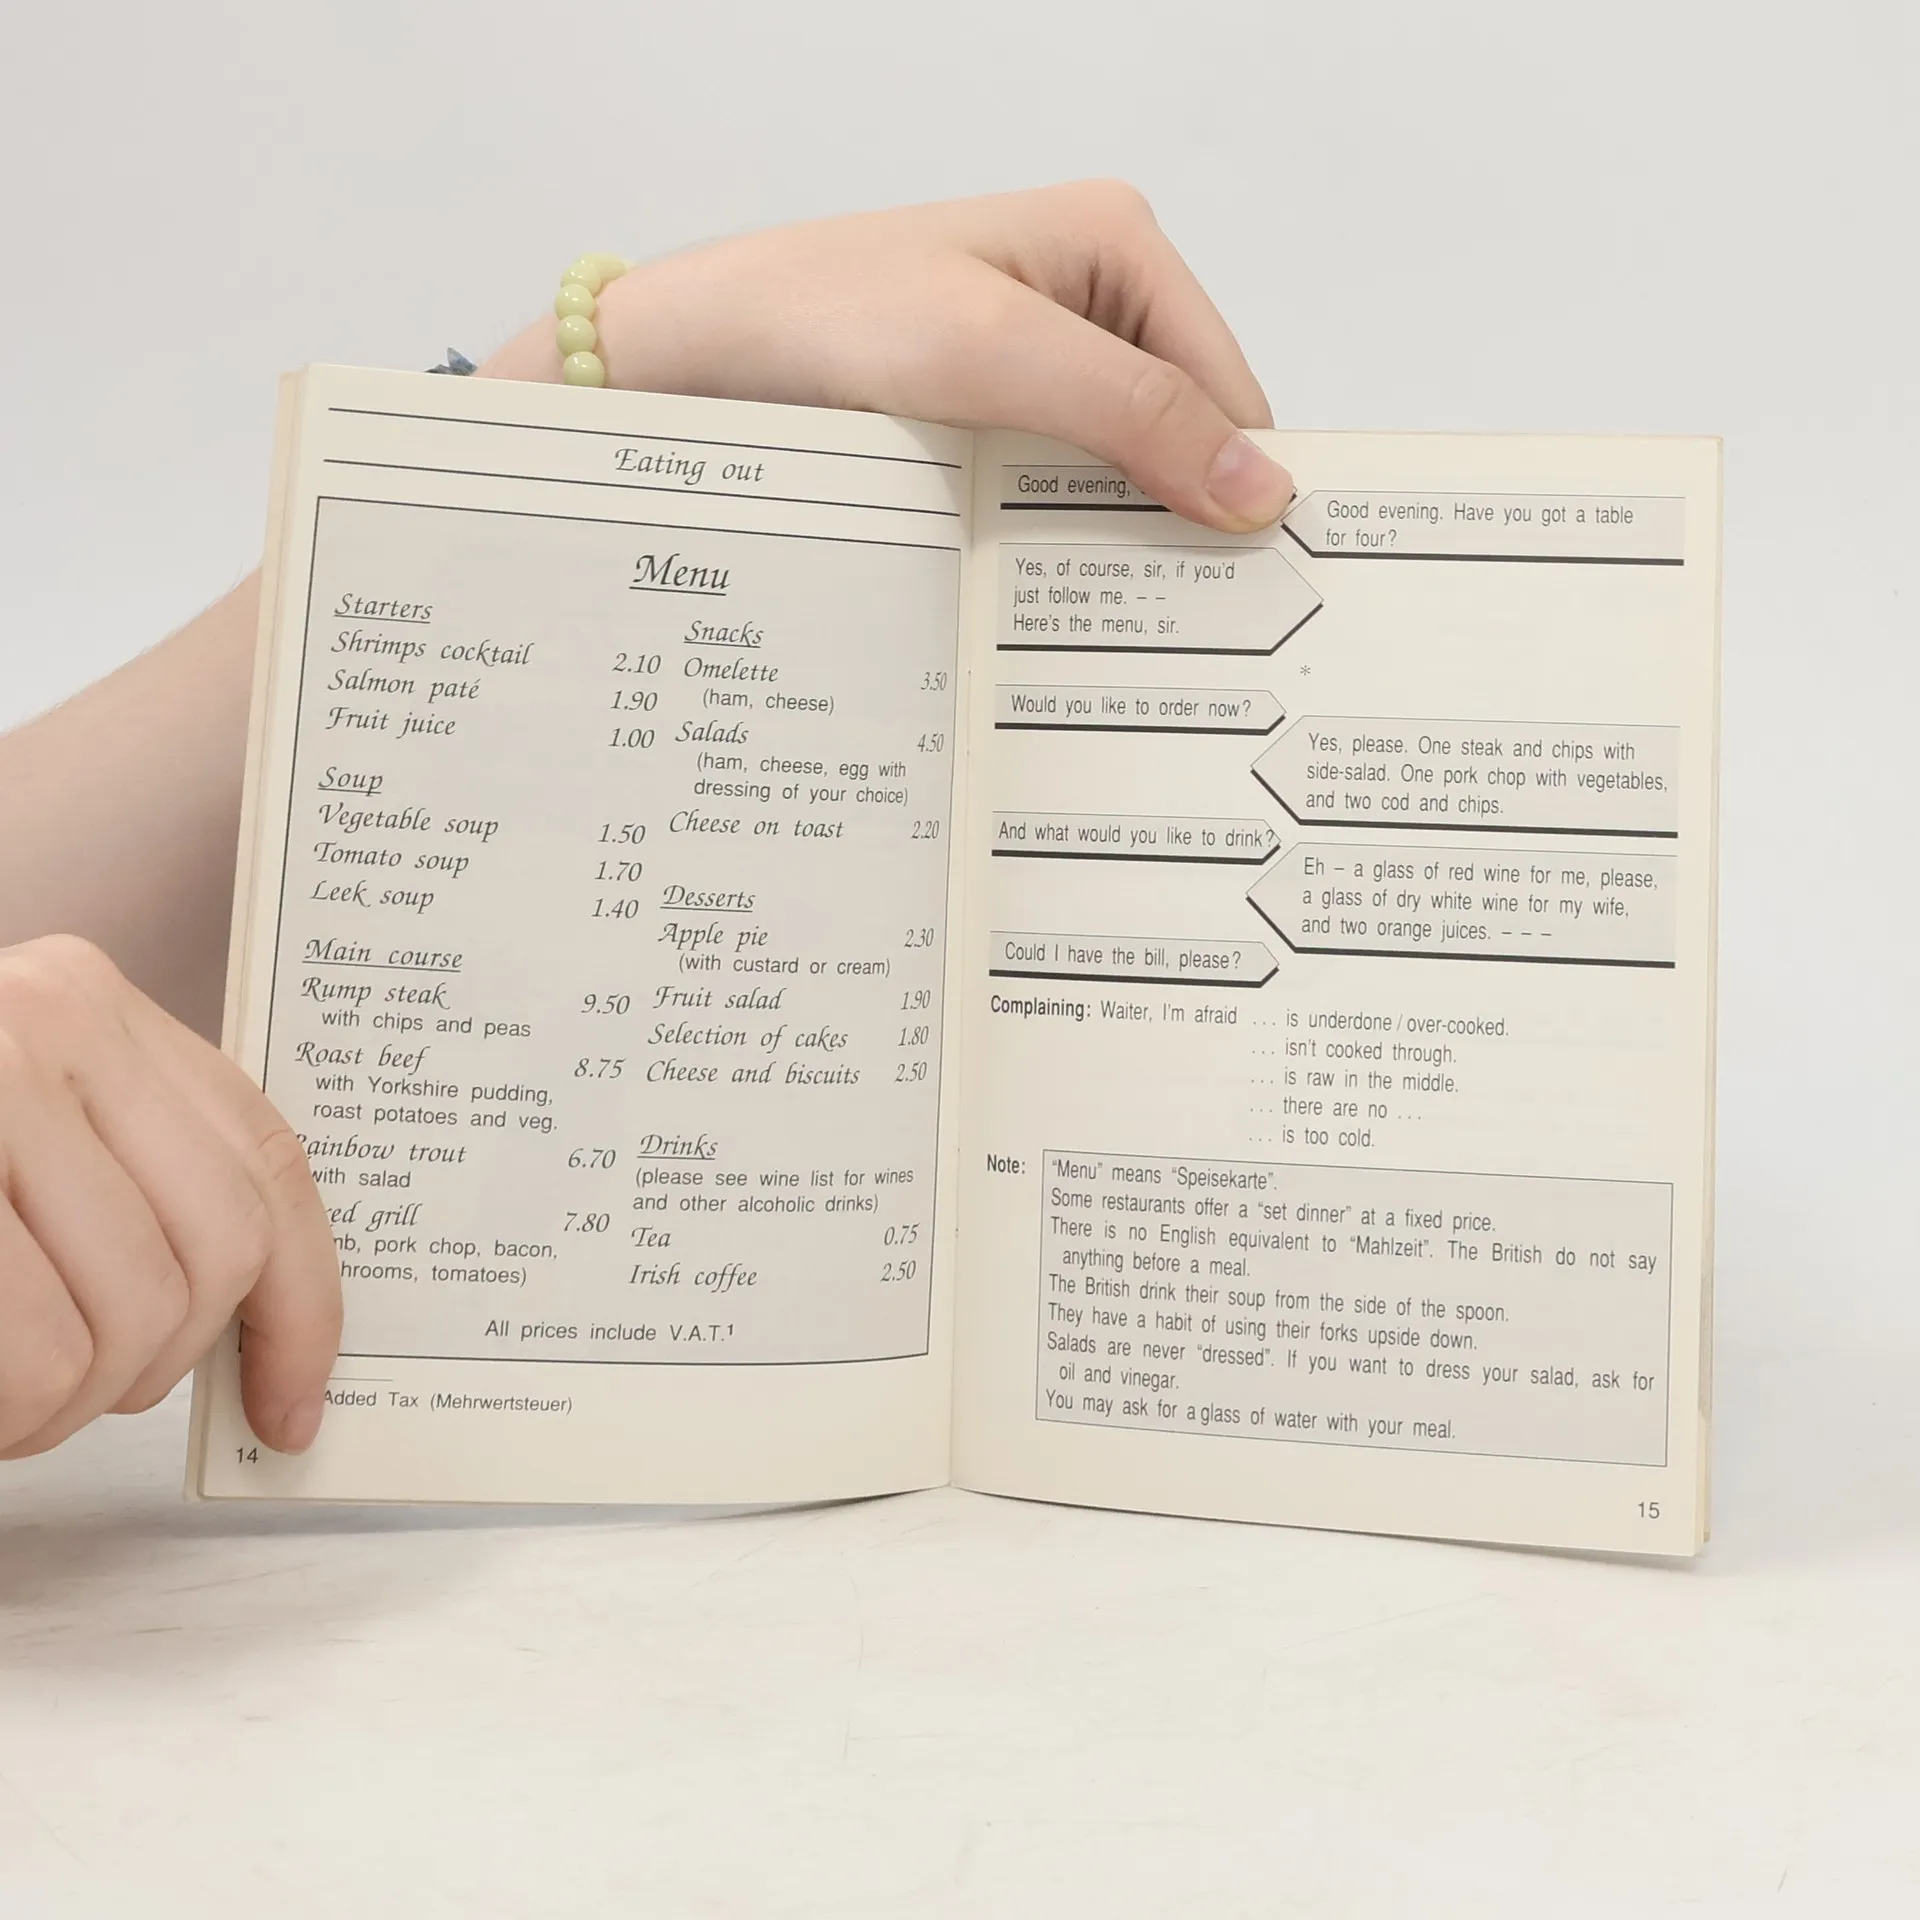 Eating out
Menu
Starters
Shrimps cocktail 2.10
Salmon paté 1.90
Fruit juice 1.00
Soup
Vegetable soup 1.50
Tomato soup 1.70
Leek soup 1.40
Main course
Rump steak 9.50
with chips and peas
Roast beef 8.75
with Yorkshire pudding,
roast potatoes and veg.
Rainbow trout 6.70
with salad
grill 7.80
pork chop, bacon,
tomatoes)
Snacks
Omelette 3.50
(ham, cheese)
Salads 4.50
(ham, cheese, egg with
dressing of your choice)
Cheese on toast 2.20
Desserts
Apple pie 2.30
(with custard or cream)
Fruit salad 1.90
Selection of cakes 1.80
Cheese and biscuits 2.50
Drinks
(please see wine list for wines
and other alcoholic drinks)
Tea 0.75
Irish coffee 2.50
All prices include V.A.T.¹
Added Tax (Mehrwertsteuer)
14
Good evening,
Good evening. Have you got a table
for four?
Yes, of course, sir, if you'd
just follow me. – –
Here's the menu, sir.
*
Would you like to order now?
Yes, please. One steak and chips with
side-salad. One pork chop with vegetables,
and two cod and chips.
And what would you like to drink?
Eh – a glass of red wine for me, please,
a glass of dry white wine for my wife,
and two orange juices. – – –
Could I have the bill, please?
Complaining: Waiter, I'm afraid ... is underdone / over-cooked.
... isn't cooked through.
... is raw in the middle.
... there are no ...
... is too cold.
Note: "Menu" means "Speisekarte".
Some restaurants offer a "set dinner" at a fixed price.
There is no English equivalent to "Mahlzeit". The British do not say
anything before a meal.
The British drink their soup from the side of the spoon.
They have a habit of using their forks upside down.
Salads are never "dressed". If you want to dress your salad, ask for
oil and vinegar.
You may ask for a glass of water with your meal.
15